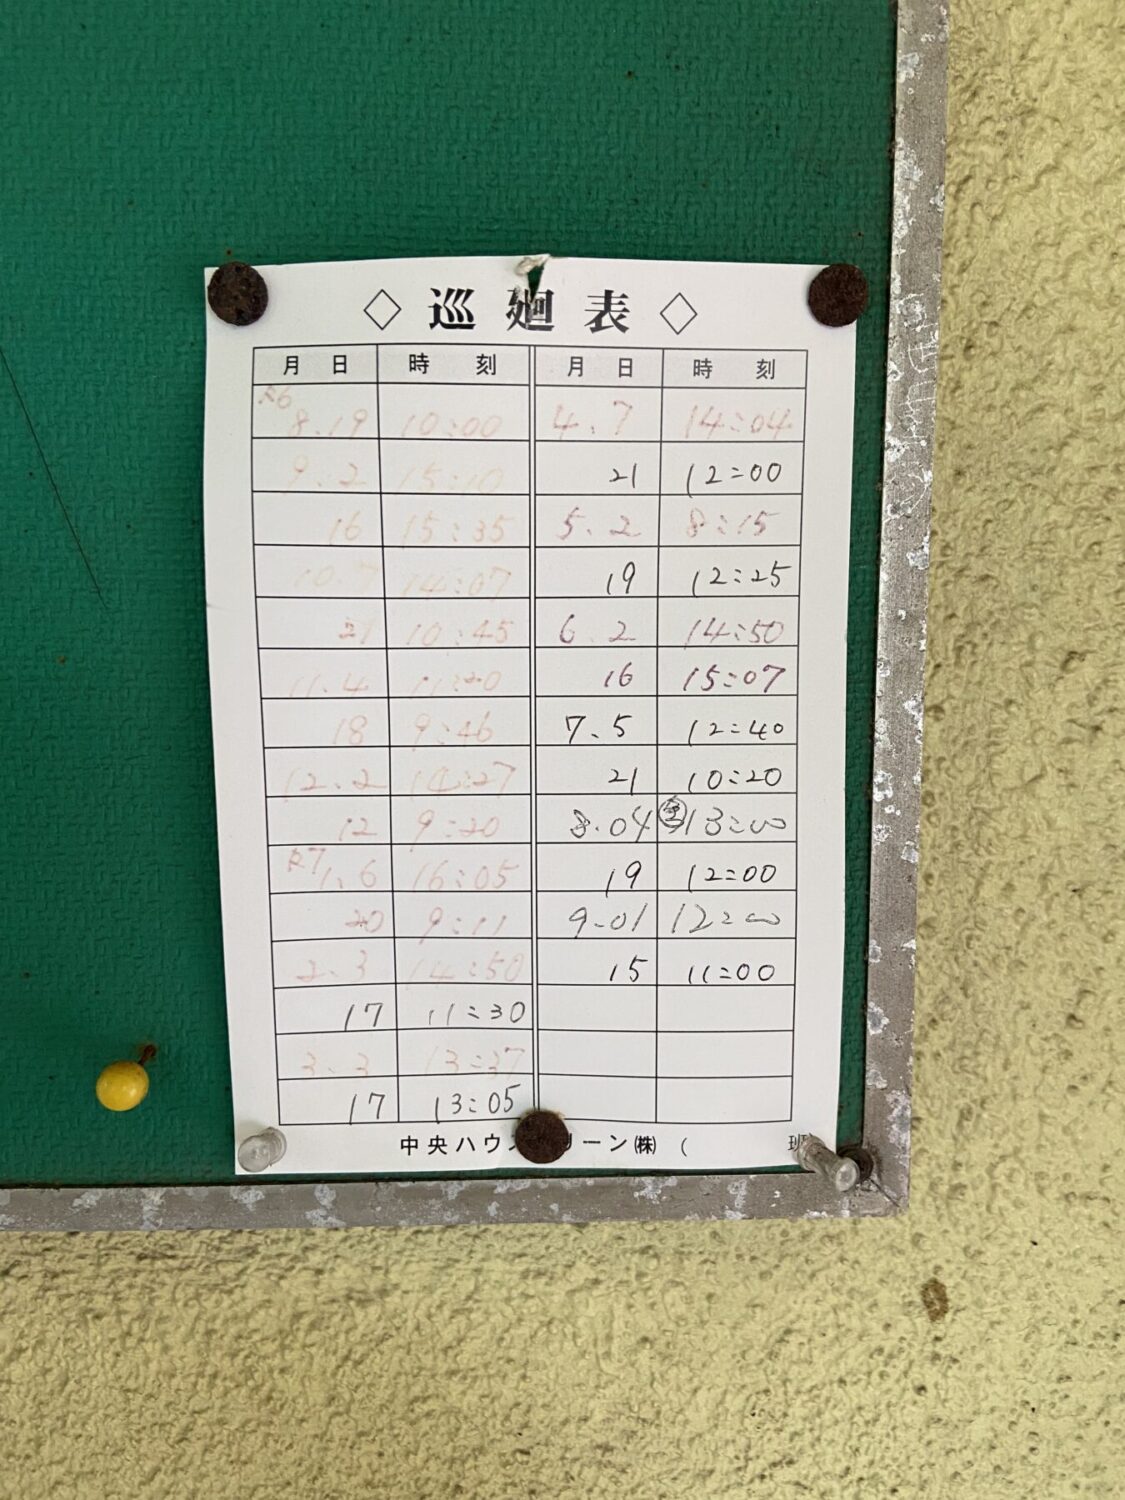 ◇ 巡廻表 ◇
月日 時刻 月日 時刻
R6
8.19 10:00 4.7 14:04
9.2 15:10 21 12:00
16 15:35 5.2 8:15
10.7 14:07 19 12:25
21 10:45 6.2 14:50
11.4 11:20 16 15:07
18 9:46 7.5 12:40
12.2 14:27 21 10:20
12 9:20 8.04 13:00
R7
1.6 16:05 19 12:00
20 9:11 9.01 12:00
2.3 14:50 15 11:00
17 11:30
3.3 13:37
17 13:05
中央ハウス リーン㈱ ( 班